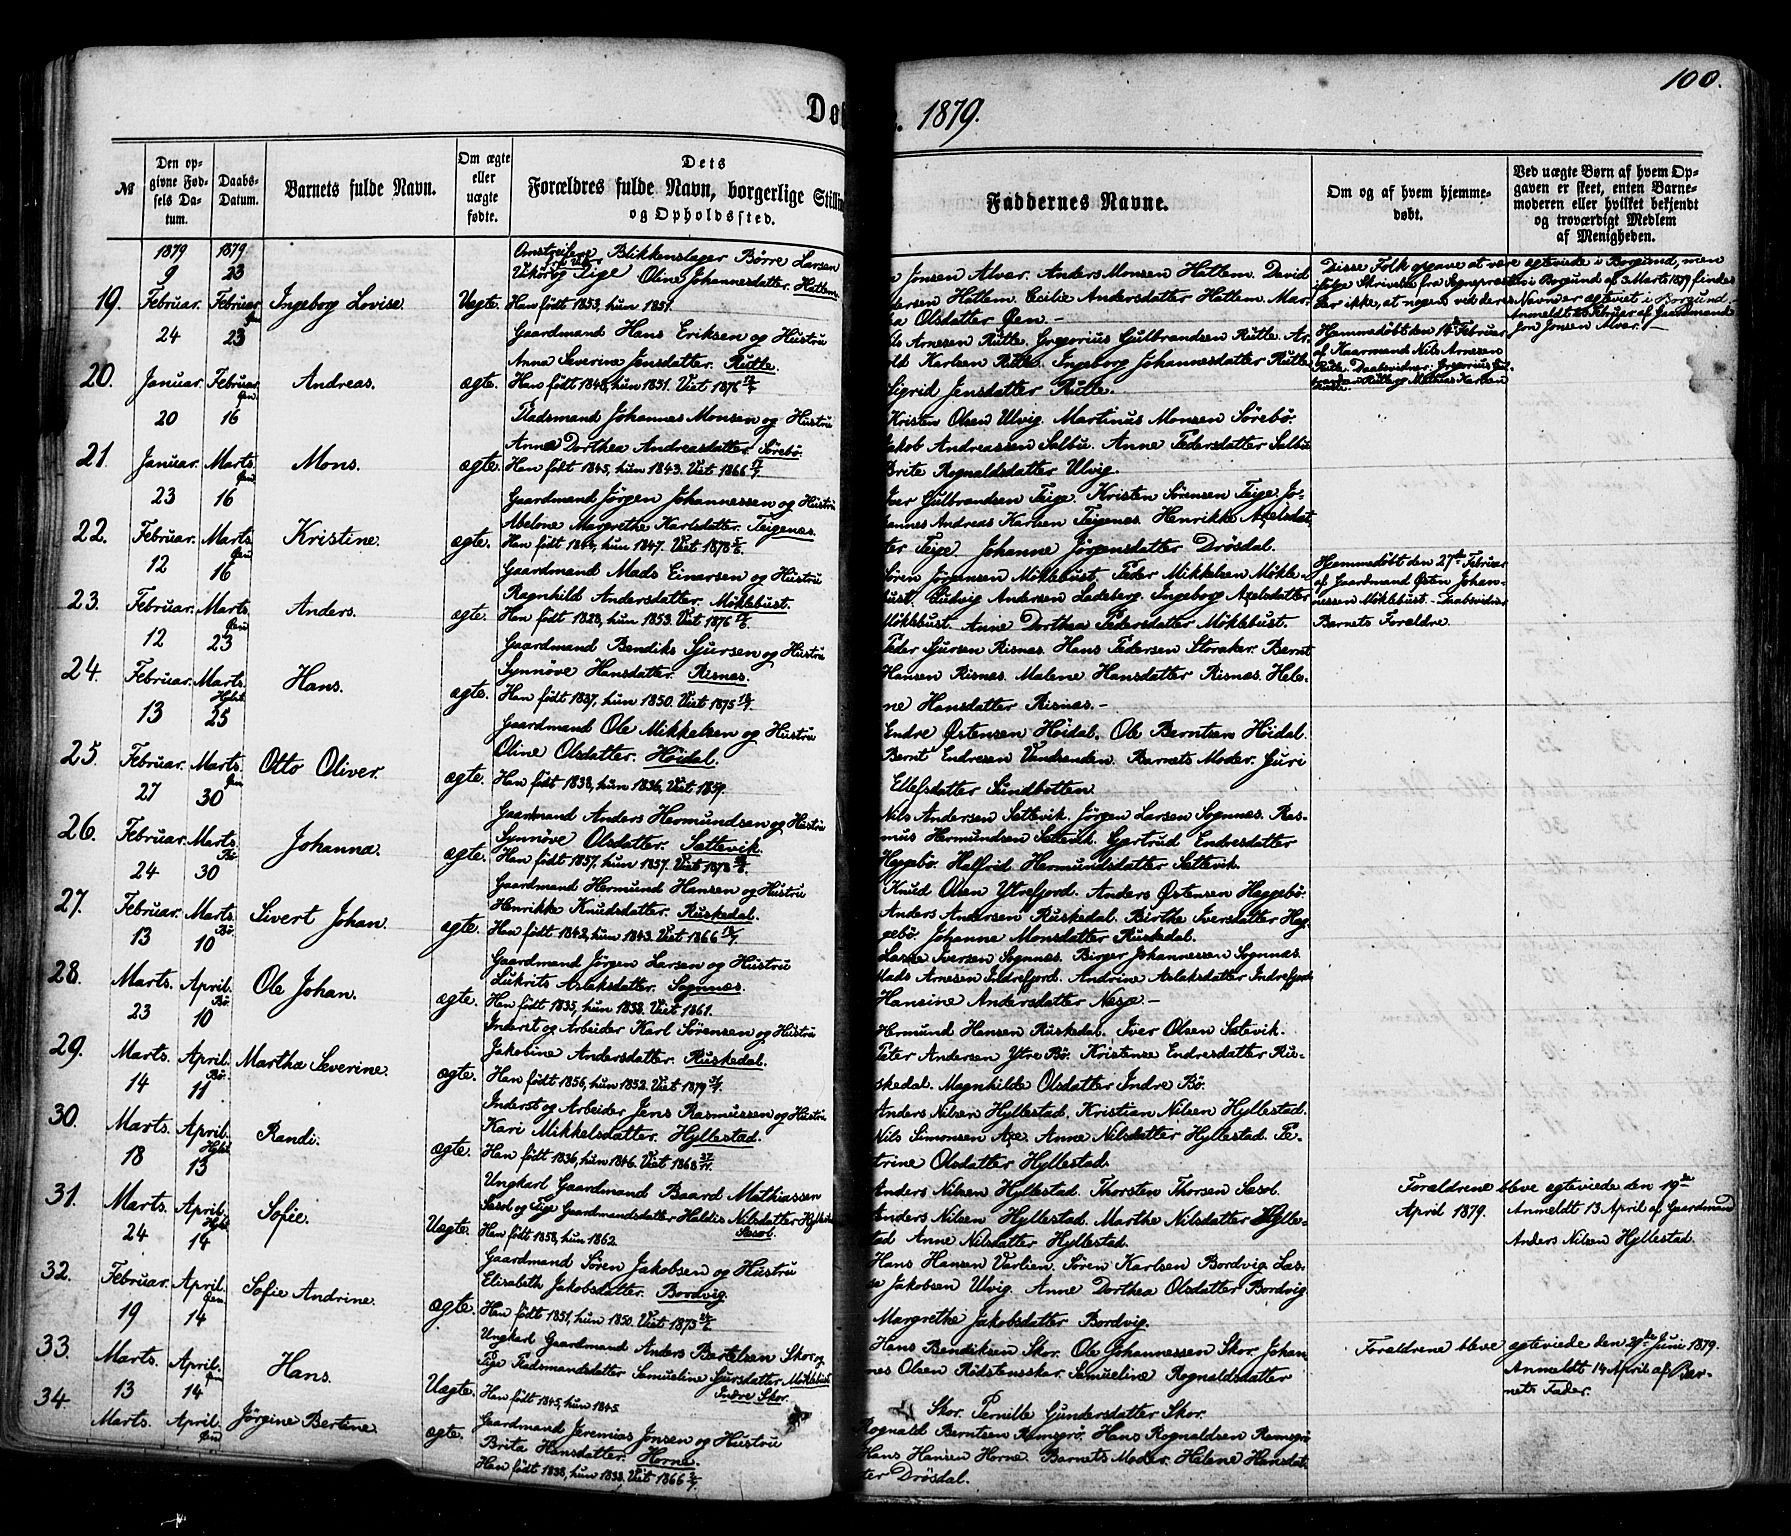 100.
Dø
1879.
№
Den op-
givne Fød-
sels Da-
tum.
Daabs-
Datum.
Barnets fulde Navn.
Om ægte
eller
uægte
fødte.
Dets
Forældres fulde Navn, borgerlige Stillin
og Opholdssted.
Faddernes Navne.
Om og af hvem hjemme-
døbt.
Ved uægte Børn af hvem Op-
gaven er skeet, enten Barne-
moderen eller hvilket bekjendt
og troværdigt Medlem
af Menigheden.
1879 1879
19. 9 Februar. 23 Februar Ingeborg Lovise. Uægte.
Omstreifere Blikkenslager Børre Larsen
og Pige Oline Johannesdatter. Hatlem
Han født 1853, hun 1857.
Jonsen Alvar. Anders Monsen Hatlem. David
dersen Hatlem. Cecilie Andersdatter Hatlem. Mar-
Olsdatter Øen.
Disse Folk opgave at være ægteviede i Borgund, men
ifølge Skrivelse fra Sognepræsten i Borgund af 3 Marts 1879 findes
der ikke, at nogen ved deres Navn er ægteviet i Borgund.
Anmeldt Februar af Gaardmand
Jon Jonsen Alvar.
20. 24 Januar. 23 Februar Andreas. ægte.
Gaardmand Hans Eriksen og Hustru
Anna Severine Jensdatter. Rutle.
Han født 1848, hun 1851. Viet 1876
Arnesen Rutle. Gregorius Gulbrandsen Rutle. Ar-
Karlsen Rutle. Ingeborg Johannesdatter Rutle
Sigrid Jensdatter Rutle.
Hjemmedøbt den 14 Februar
af Kaarmand Nils Arnesen
Rutle. Daabsvidner: Gregorius Gul-
brandsen Rutle og Karlsen
Rutle.
21. 20 Januar. 16 Marts. Mons. ægte.
Pladsmand Johannes Monsen og Hustru
Anne Dorthea Andreasdatter. Sørebø.
Han født 1845, hun 1843. Viet 1866
Kristen Olsen Ulvig. Martinus Monsen Sørebø.
Jakob Andreassen Salbu. Anne Pedersdatter Salbu
Brite Rognaldsdatter Ulvig.
22. 23 Februar. 16 Marts. Kristine. ægte.
Gaardmand Jørgen Johannessen og Hustru
Abelone Margrethe Karlsdatter. Teigenæs.
Han født 1844, hun 1847. Viet 1878
Iver Gulbrandsen Teige. Kristen Sørensen Teige. Jo-
hannes Andreas Karlsen Teigenæs. Henrikke Axelsdat-
ter Teige. Johanne Jørgensdatter Drøsdal.
23. 12 Februar. 16 Marts. Anders. ægte.
Gaardmand Mads Einarsen og Hustru
Ragnhild Andersdatter. Møklebust.
Han født 1828, hun 1853. Viet 1876
Søren Jørgensen Møklebust. Peder Mikkelsen Møkle-
bust. Ludvig Andersen Ladeberg. Ingeborg Axelsdatter
Møklebust. Anne Dorthea Pedersdatter Møklebust.
Hjemmedøbt den 27de Februar
af Gaardmand Østen Johan-
nessen Møklebust. Daabsvidner
Barnets Forældre.
24. 12 Februar. 23 Marts. Hans. ægte.
Gaardmand Bendik Sjursen og Hustru
Synnøve Hansdatter. Risnæs.
Han født 1837, hun 1850. Viet 1875
Peder Sjursen Risnæs. Hans Pedersen Storaker. Bernt
Hansen Risnæs. Malene Hansdatter Risnæs. Hele-
ne Hansdatter Risnæs.
25. 13 Februar. 25 Marts. Otto Oliver. ægte.
Gaardmand Ole Mikkelsen og Hustru
Oline Olsdatter. Høidal.
Han født 1838, hun 1836, Viet 1859.
Endre Østensen Høidal. Ole Berntsen Høidal.
Bernt Endresen Vandsenden. Barnets Moder. Guri
Ellefsdatter Sundbotten.
26. 27 Februar. 30 Marts. Johanna. ægte.
Gaardmand Anders Hermundsen og Hustru
Synnøve Olsdatter. Sættevik.
Han født 1857, hun 1857. Viet 1878
Nils Andersen Sættevik. Jørgen Larsen Sognnæs. Ras-
mus Hermundsen . Gjertrud Endresdatter
Haggebø. Halfrid Hermundsdatter Sættevik.
27. 24 Februar. 30 Marts. Sivert Johan. ægte.
Gaardmand Hermund Hansen og Hustru
Henrikke Knudsdatter. Ruskedal.
Han født 1842, hun 1843. Viet 1866
Knud Olsen Ytrefjord. Anders Østensen Haggebø.
Anders Andersen Ruskedal. Birthe Iversdatter Hag-
gebø. Johanne Monsdatter Ruskedal.
28. 13 Marts. 10 April. Ole Johan. ægte.
Gaardmand Jørgen Larsen og Hustru
Lukrits Aslaksdatter. Sognnæs.
Han født 1835, hun 1838. Viet 1861.
Lasse Iversen Sognnæs. Birger Johannessen Sognnæs.
Mads Arnesen Indrefjord. Andrine Aslaksdatter Indrefjord
Hansine Andersdatter Nesje.
29. 23 Marts. 10 April. Martha Severine. ægte.
Inderst og Arbeider Karl Sørensen og Hustru
Jakobine Andersdatter. Ruskedal.
Han født 1856, hun 1852. Viet 1879
Hermund Hansen Ruskedal. Iver Olsen Sætevik.
Peter Andersen Ytre Bø. Kristense Endresdatter Rus-
skedal. Magnhilde Olsdatter Indre Bø.
30. 14 Marts. 11 April. Randi. ægte.
Inderst og Arbeider Jens Rasmussen og Hustru
Kari Mikkelsdatter. Hyllestad.
Han født 1836, hun 1846. Viet 1868
Anders Nilsen Hyllestad. Kristian Nilsen Hyllestad.
Nils Simonsen Axe. Anne Nilsdatter Hyllestad. Pe-
trine Olsdatter Hyllestad.
31. 18 Marts. 13 April. Sofie. Uægte.
Ungkarl Gaardmand Baard Mathiassen
Sæsol og Pige Gaardmandsdatter Haldis Nilsdatter
Sæsol.
Han født 1858, hun 1862.
Anders Nilsen Hyllestad. Thorsten Thorsen Sæsol.
Anders Nilsen Hyllestad. Marthe Nilsdatter Hylle-
stad Anne Nilsdatter Hyllestad.
Forældrene bleve ægteviede den 19de
April 1879. Anmeldt 13 April af Gaardmand
Anders Nilsen Hyllestad.
32. 24 Februar. 14 April. Sofie Andrine. ægte.
Gaardmand Søren Jakobsen og Hustru
Elisabeth Jakobsdatter. Bordvig.
Han født 1851, hun 1850. Viet 1873
Hans Hansen Varlien. Søren Karlsen Bordvig. Las-
se Jakobsen Ulvig. Anne Dorthea Olsdatter Bordvig
Margrethe Jakobsdatter Bordvig.
33. 19 Marts. 14 April. Hans. Uægte.
Ungkarl Gaardmand Anders Bertelsen Skor og
Pige Pladsmandsdatter Samueline Sjursdatter
Indre Skor.
Han født 1845, hun 1845.
Hans Bendiksen Skor. Ole Johannessen Skor. Johan-
nes Olsen Rødstensskar. Samueline Rognaldsdatter
Skor. Pernille Gundersdatter Skor.
Forældrene bleve ægteviede den 29de Juni 1879.
Anmeldt 14 April af Bar-
nets Fader.
34. 13 Marts. 14 April. Jørgine Bertine. ægte.
Gaardmand Jeremias Jonsen og Hustru
Brita Hansdatter. Horne.
Han født 1838, hun 1838. Viet 1866
Rognald Berntsen Ramsgrø. Hans Rognaldsen Ramsgrø
Hans Hansen Horne. Barnets Moder. Helene Hansdat-
ter Drøsdal.